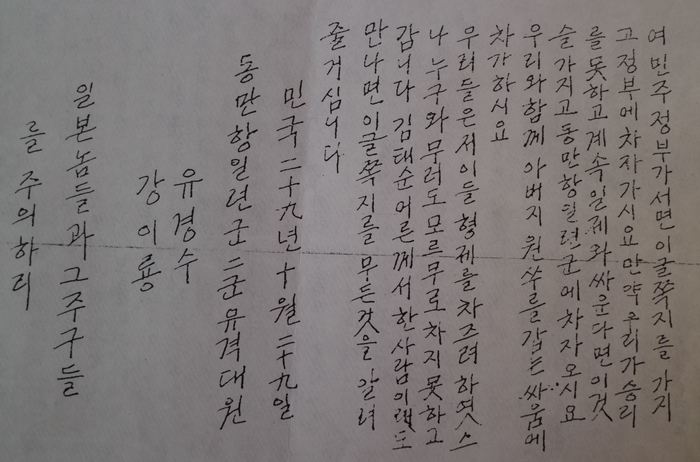 여 민주 정부가 서면 이 글쪽지를 가지
고 정부에 차자가시요 만약 우리가 승리
를 못하고 계속 일제와 싸운다면 이것
슬 가지고 동만항일련군에 차자오시요
우리와 함께 아버지 원쑤를 갑는 싸움에
차가하시요
우리들은 저이들 형제를 차즈려 하엿스
나 누구와 무러도 모르무로 차지 못하고
감니다 김태순 어른께서 한사람이래도
만나면 이 글쪽지를 무든것을 알려
줄거심니다
민국 二十九년 十월 二十九일
동만항일련군 二군 유격대원
유경수
강이룡
일본놈들과 그 주구들
를 주의하리